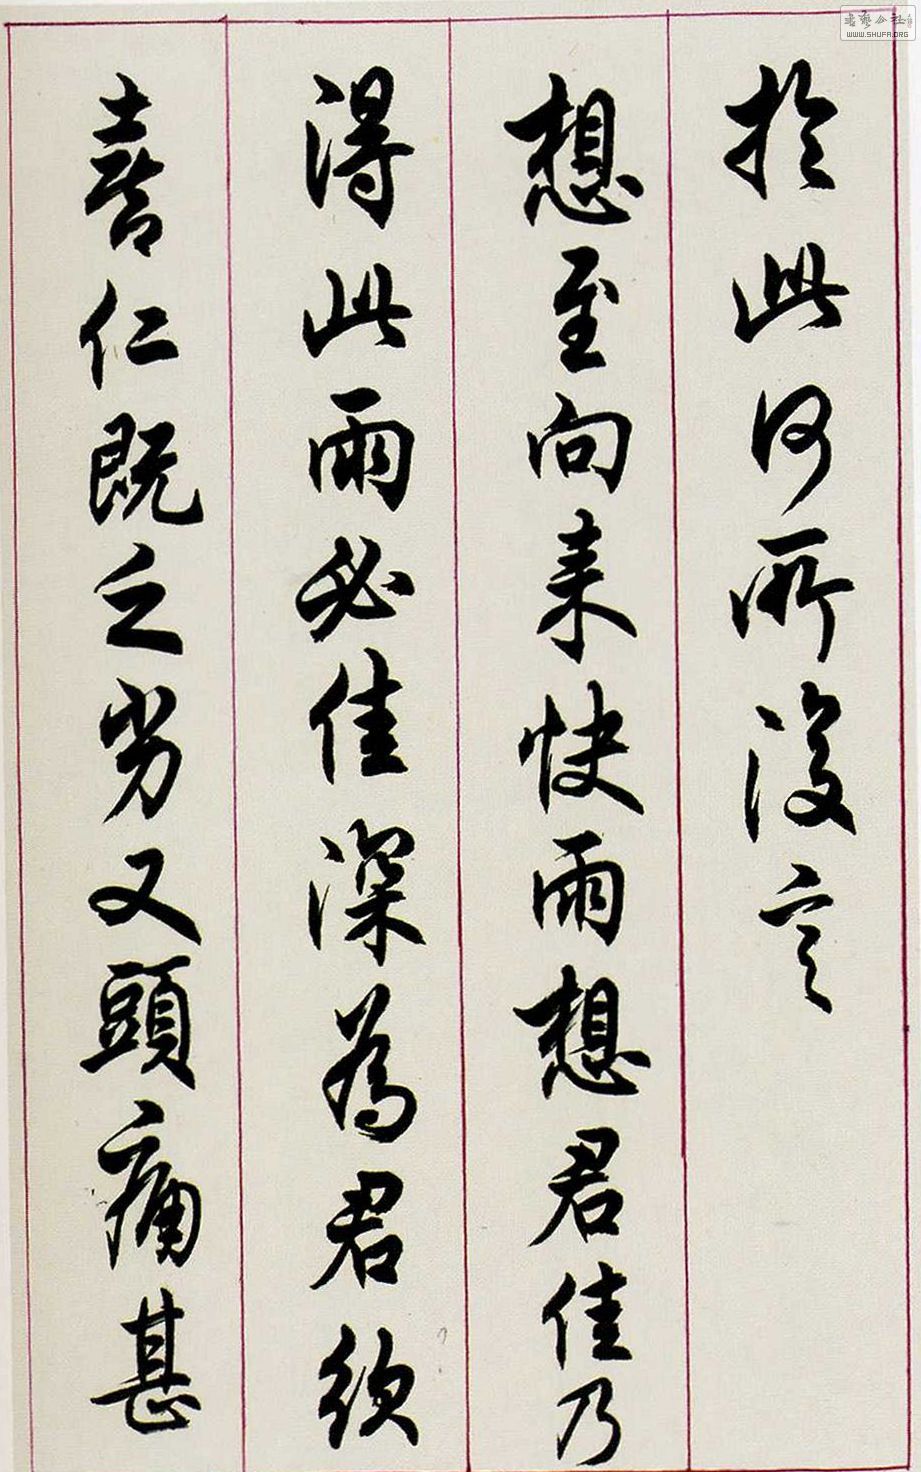 於此何所復言
想至向来快雨想君佳乃
得此雨必佳深為君欣
喜仁既乏劣又頭痛甚
書藝公社
WWW.SHUFA.ORG